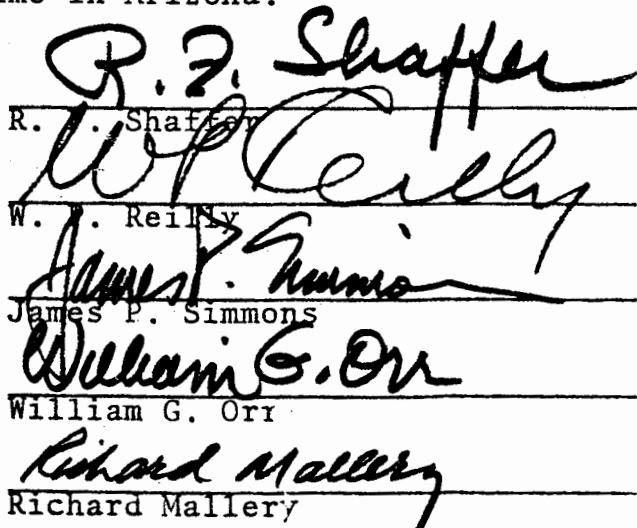 in Arizona.
R. F. Shaffer
R. F. Shaffer
W P Reilly
W. P. Reilly
James P. Simmons
James P. Simmons
William G. Orr
William G. Orr
Richard Mallery
Richard Mallery